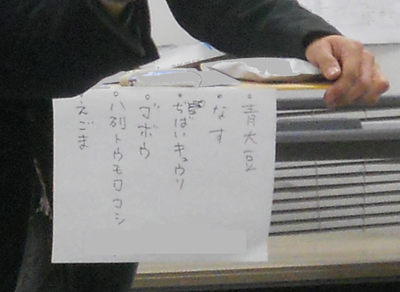 ・青大豆
・なす
・ぢばいキュウリ
・ゴボウ
・八列トウモロコシ
・えごま